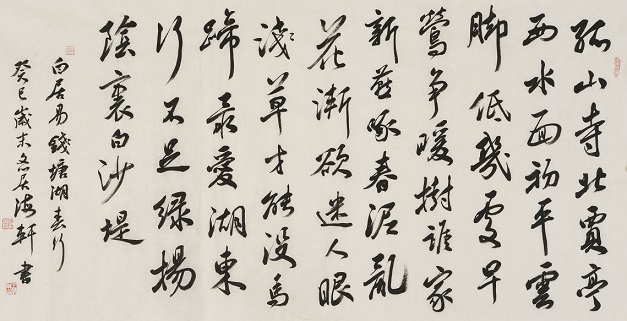 孤山寺北賈亭
西水面初平雲
脚低幾處早
鶯争暖樹誰家
新燕啄春泥亂
花漸欲迷人眼
淺草才能没馬
蹄最愛湖東
行不足绿揚
陰裏白沙堤
白居易錢塘湖春行
癸巳歲末海軒書